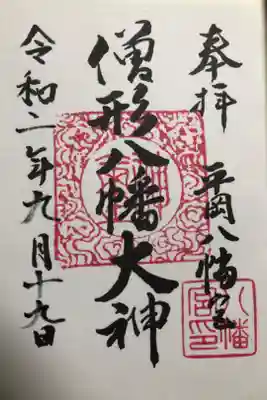 奉拝
平岡八幡宮
僧形八幡大神
令和二年九月十九日
八幡
宮印